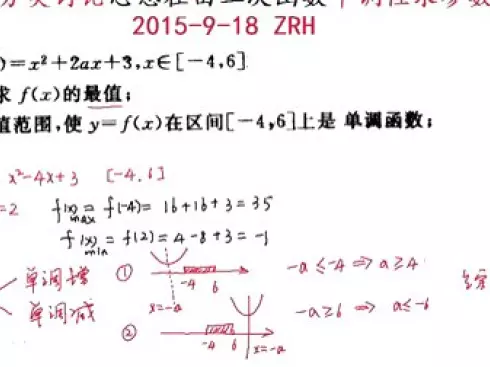 分类讨论思想在由二次函数单调性求参数
2015-9-18 ZRH
)=x²+2ax+3,x∈[-4,6]
求 f(x)的最值;
值范围,使 y=f(x)在区间[-4,6]上是 单调函数;
x²-4x+3 [-4,6]
=2 f(x)max = f(-4)= 16+16+3=35
f(x)min = f(2)=4-8+3=-1
单调增 ① -4 6 x=-a -a≤-4 ⇒ a≥4
单调减 ② -4 6 x=-a -a≥6 ⇒ a≤-6